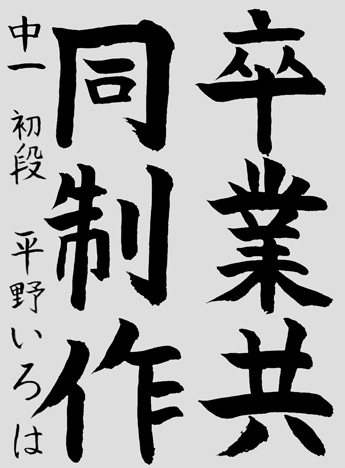 卒業共
同制作
中一 初段 平野いろは